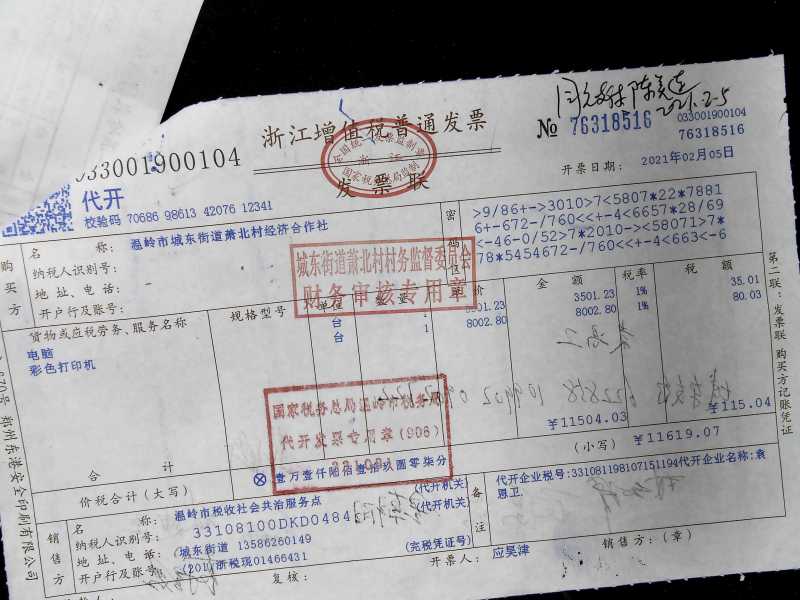 浙江增值税普通发票
发票联
033001900104
代开
校验码 70686 98613 42076 12341
№ 76318516
033001900104
76318516
开票日期: 2021年02月05日
2021.2-5
全国统一发票监制章
浙江
国家税务总局监制
购买方
名称: 温岭市城东街道萧北村经济合作社
纳税人识别号:
地址、电话:
开户行及账号:
密码区
>9/86+->3010>7<5807*22*7881
6+-672-/760<<+-4*6657*28/69
<-46-0/52>7*2010->58071>7*
78*5454672-/760<<+-4<663<-6
城东街道萧北村村务监督委员会
财务审核专用章
货物或应税劳务、服务名称 规格型号 单位 数量 单价 金额 税率 税额
电脑 台 1 3501.23 3501.23 1% 35.01
彩色打印机 台 1 8002.80 8002.80 1% 80.03
国家税务总局温岭市税务局
代开发票专用章(906)
合计 ¥11504.03 ¥115.04
价税合计(大写) ⊗壹万壹仟陆佰壹拾玖圆零柒分 (小写) ¥11619.07
销售方
名称: 温岭市税收社会共治服务点 (代开机关)
纳税人识别号: 33108100DKD0484 (代开机关)
地址、电话: (城东街道 13586260149
开户行及账号: (201)浙税现01466431 (完税凭证号)
备注
代开企业税号:331081198107151194代开企业名称:袁
恩卫
复核: 开票人: 应昊津 销售方:(章)
第二联:发票联 购买方记账凭证